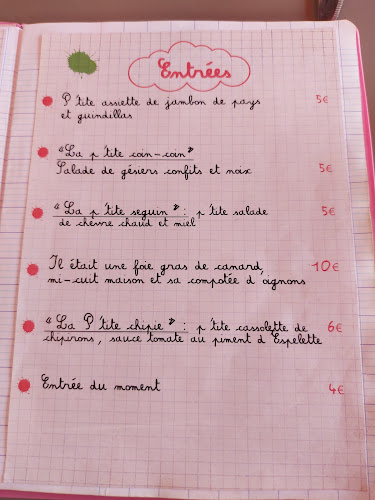 Entrées
P'tite assiette de jambon de pays 5€
et guindillas
"La p'tite coin-coin"
Salade de gésiers confits et noix 5€
"La p'tite seguin" : p'tite salade 5€
de chèvre chaud et miel
Il était une foie gras de canard, 10€
mi-cuit maison et sa compotée d'oignons
"La P'tite chipie" : p'tite cassolette de 6€
chipirons, sauce tomate au piment d'Espelette
Entrée du moment 4€